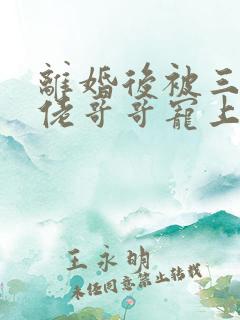 離婚後被三
佬哥哥寵上
王永明
未经同意禁止转载